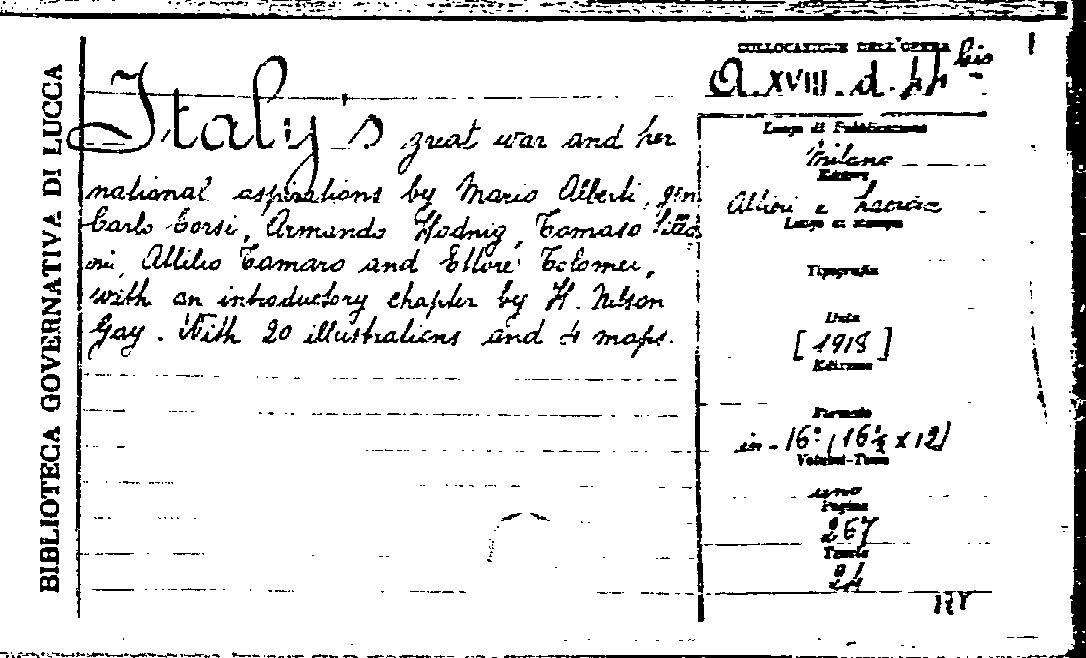 BIBLIOTECA GOVERNATIVA DI LUCCA
Italy's great war and her
national aspirations by Mario Alberti, gen
Carlo Corsi, Armando Hodnig, Tomaso Sillà
ni, Attilio Tamaro and Ettore Tolomei,
with an introductory chapter by H. Nelson
Gay. With 20 illustrations and 4 maps.
COLLOCAZIONE DELL'OPERA
A. XVIII. d. bis
Luogo di Pubblicazione
Milano
Editore
Alfieri e Lacroix
Luogo di stampa
Tipografia
Data
[1918]
Edizione
Formato
in-16° (16½ x 12)
Volumi-Tomo
uno
Pagine
267
Tavole
24